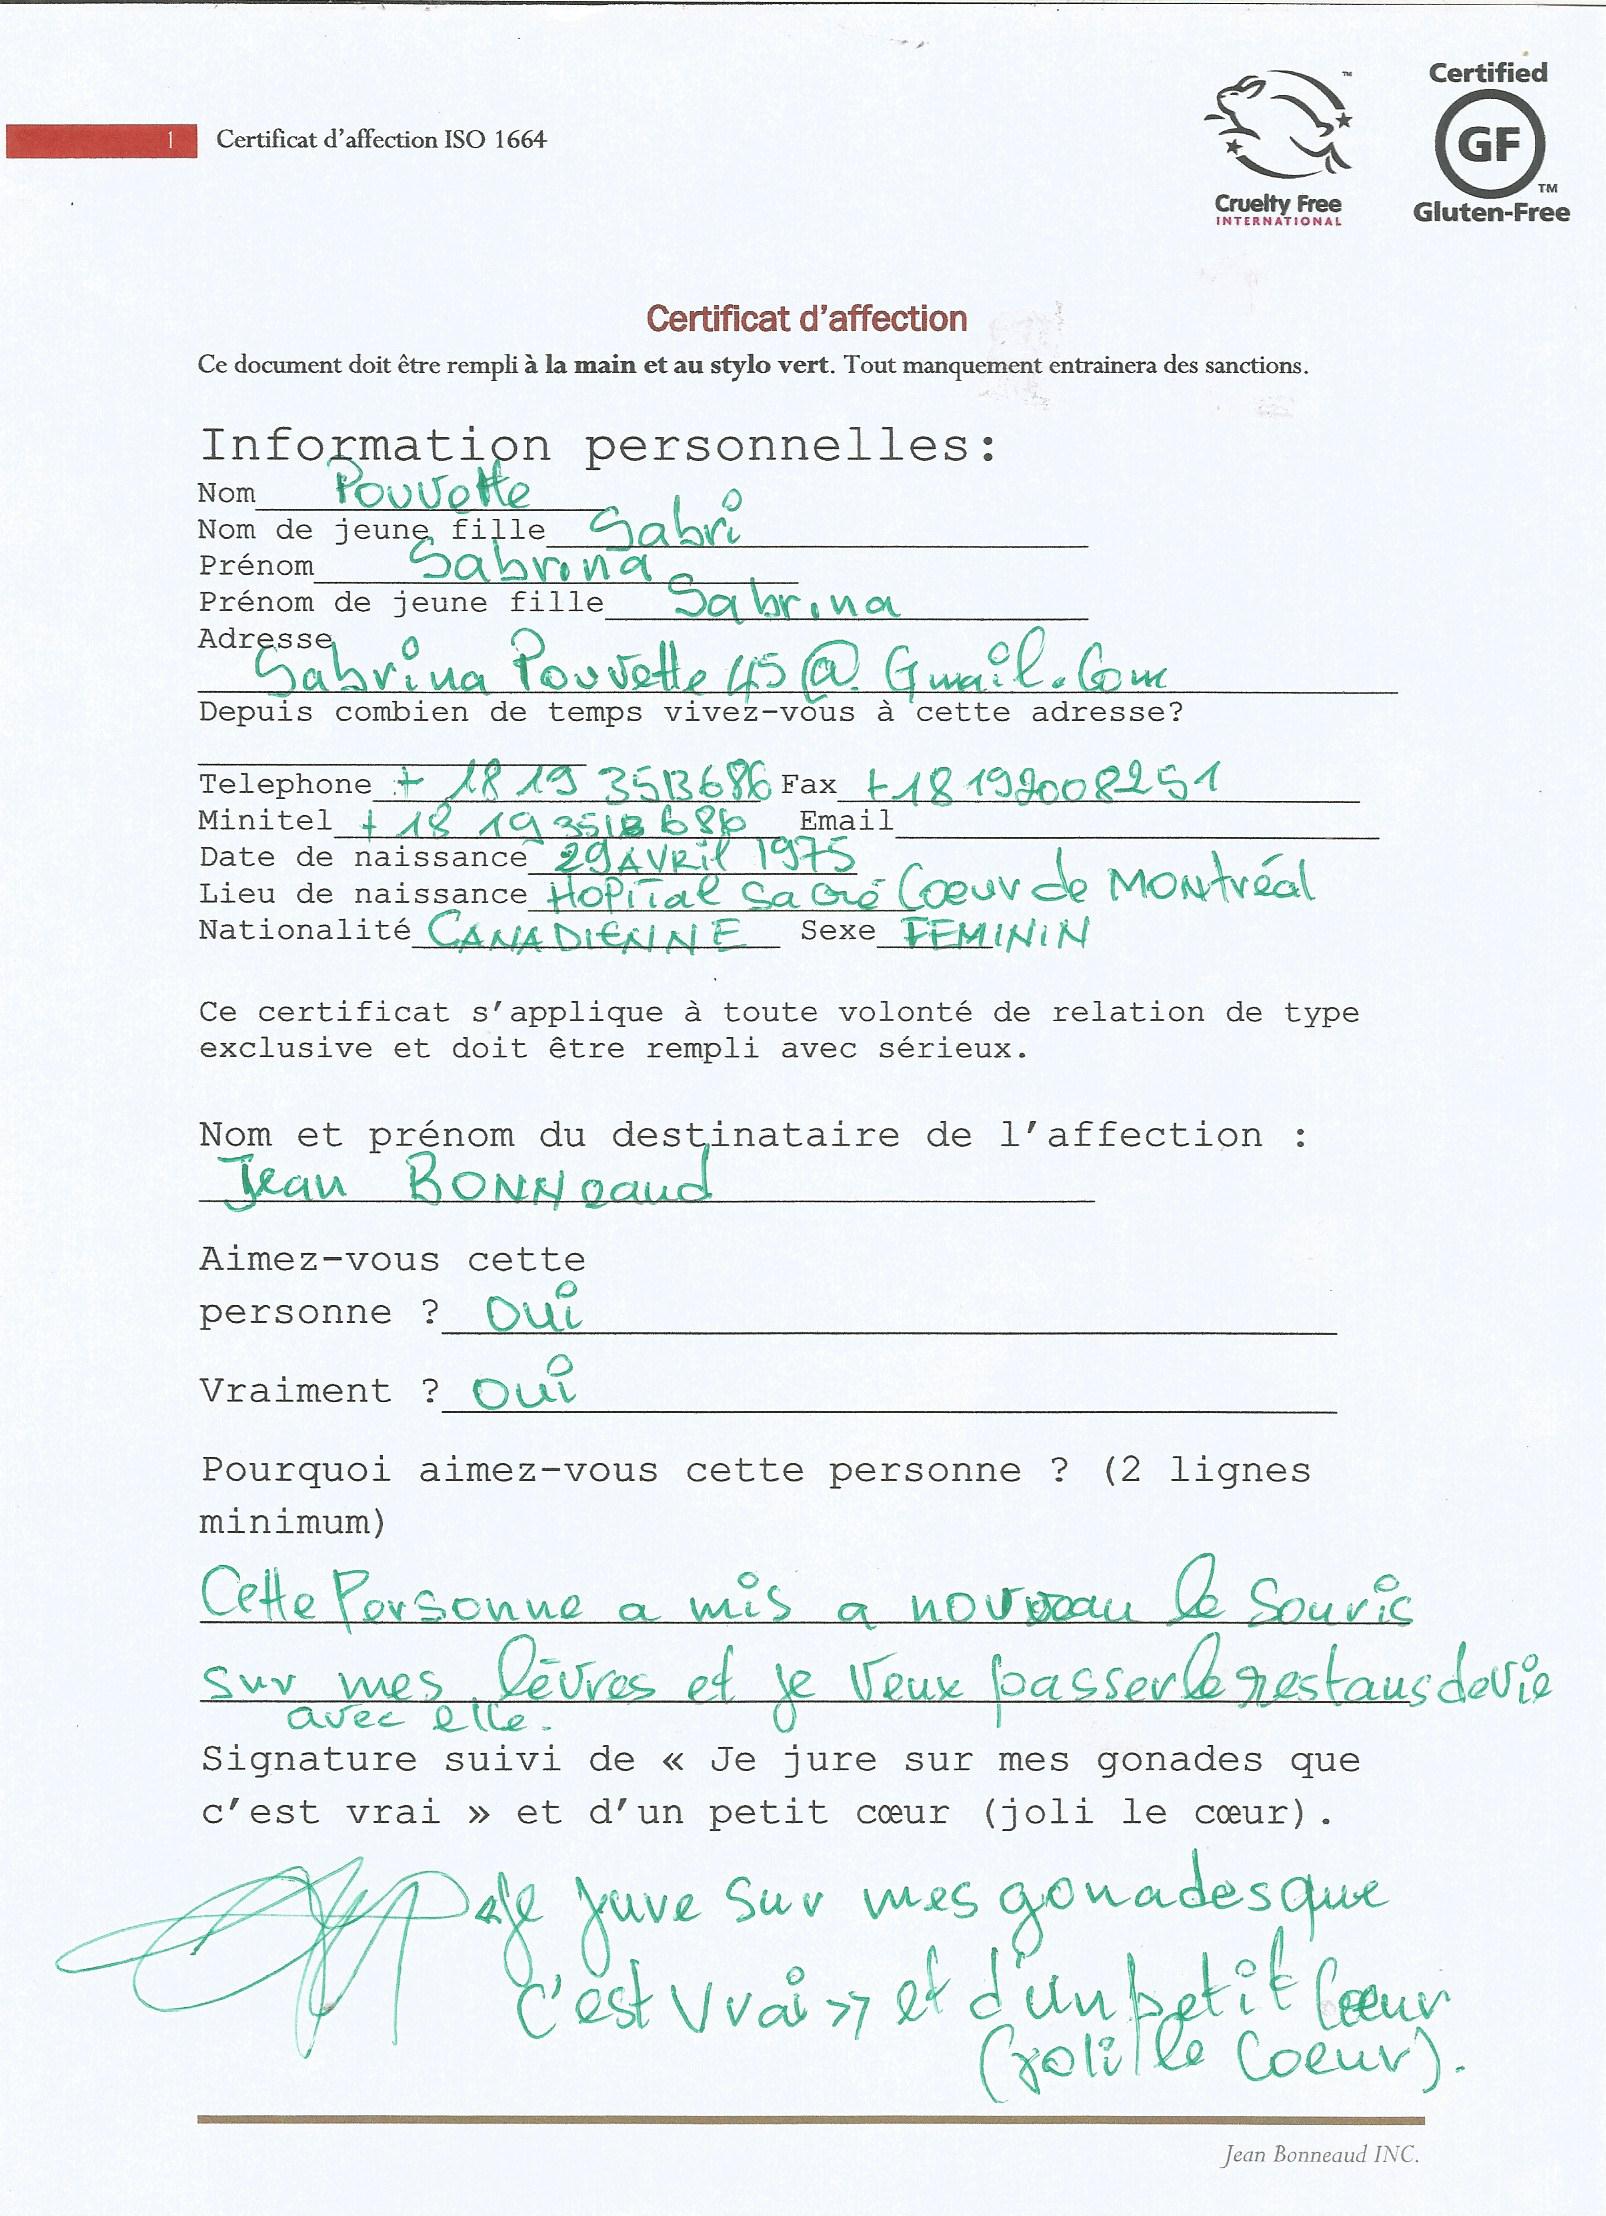 Certified
GF
TM
Gluten-Free
TM
Cruelty Free
INTERNATIONAL
1 Certificat d'affection ISO 1664
Certificat d'affection
Ce document doit être rempli à la main et au stylo vert. Tout manquement entrainera des sanctions.
Information personnelles:
Nom Pouvette
Nom de jeune fille Sabri
Prénom Sabrina
Prénom de jeune fille Sabrina
Adresse
Sabrina Pouvette 45@Gmail.Com
Depuis combien de temps vivez-vous à cette adresse?
Telephone + 18 19 3513686 Fax +18192008251
Minitel + 18 19 3513686 Email
Date de naissance 29 AVRil 1975
Lieu de naissance HOPITal Sacré Coeur de MONtréal
Nationalité CANADIENNE Sexe FEMININ
Ce certificat s'applique à toute volonté de relation de type
exclusive et doit être rempli avec sérieux.
Nom et prénom du destinataire de l'affection :
Jean BONNeaud
Aimez-vous cette
personne ? oui
Vraiment ? oui
Pourquoi aimez-vous cette personne ? (2 lignes
minimum)
Cette Personne a mis a nouveau le Souris
sur mes lèvres et je veux passer le restaus de vie
avec elle.
Signature suivi de « Je jure sur mes gonades que
c'est vrai » et d'un petit cœur (joli le cœur).
«Je jure sur mes gonades que
c'est vrai» et d'un petit Coeur
(joli le Coeur).
Jean Bonneaud INC.